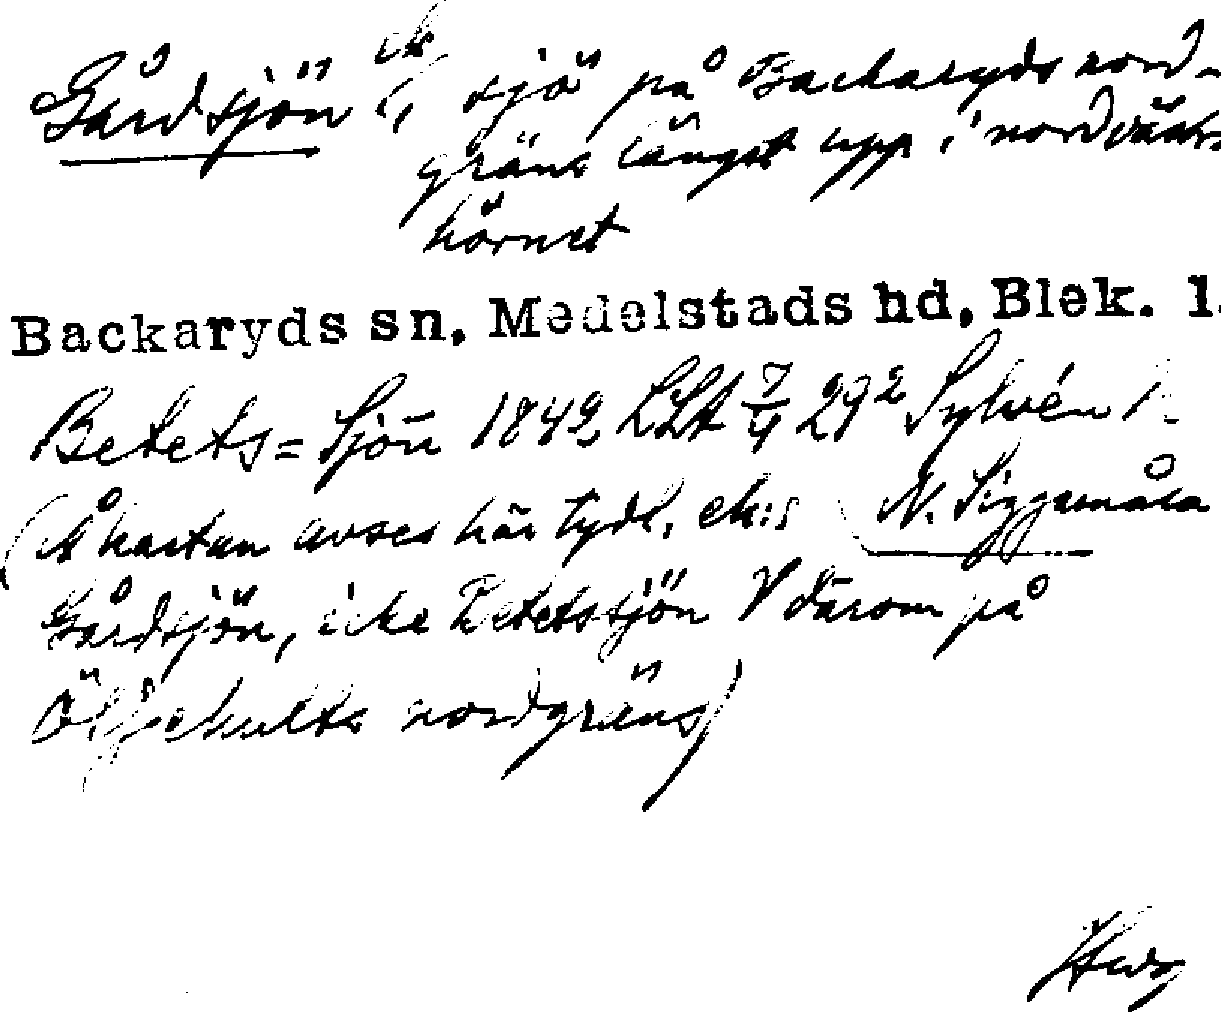 Gårdsjön ek, sjö på Backaryds nord-
gräns längst upp i nordvästr
hörnet
Backaryds sn, Medelstads hd, Blek. l.
Betets=Sjön 1842 LSA 7/4 29² Sylvén
(Å kartan avses här tydl. ek:s N. Siggamåla
Gårdsjön, icke Betetssjön V därom på
Öljehults nordgräns)